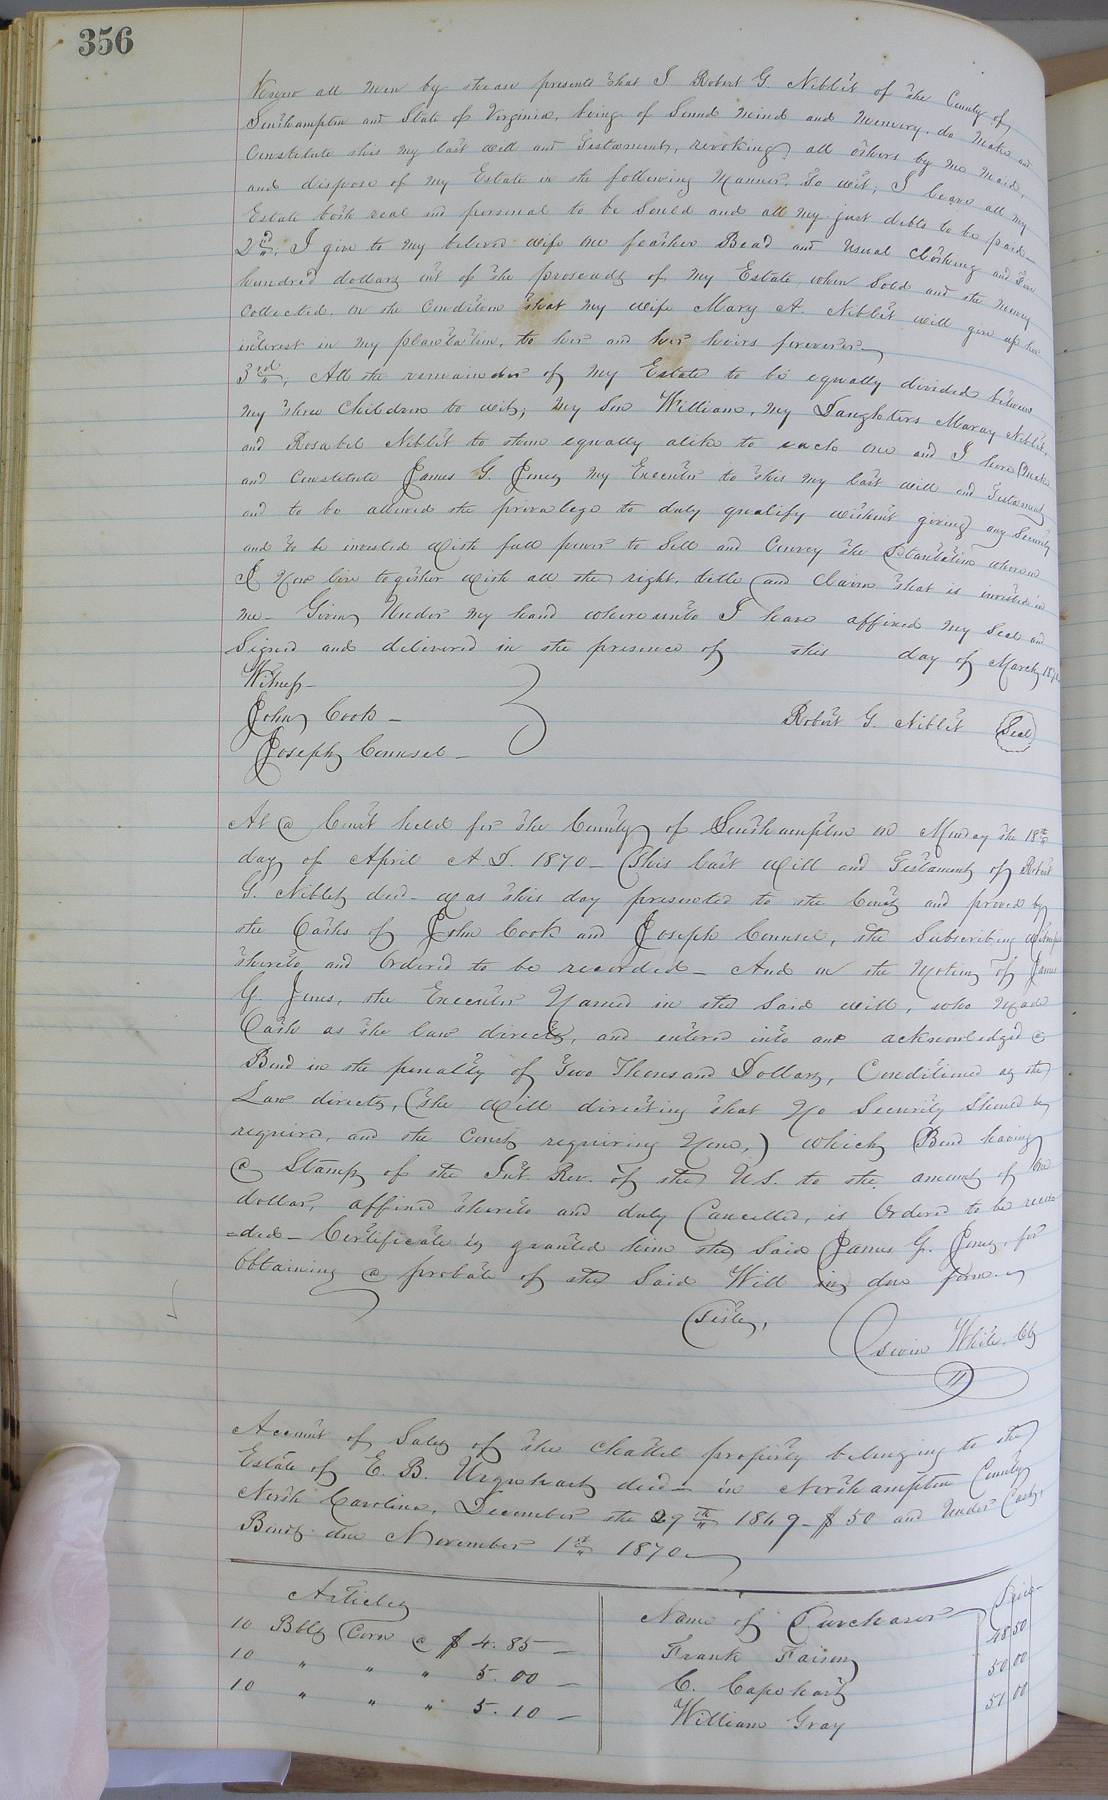 356
Know all men by these presents that I Robert G. Niblit of the County of
Southampton and State of Virginia, being of Sound mind and Memory, do Make and
Constitute this my last will and Testament, revoking all others by me Maid,
and dispose of my Estate in the following Manner, To wit; I leave all my
Estate both real and personal to be Sould and all my just debts to be paid—
2nd, I give to my beloved wife one feather Bead and usual Clothing and
hundred dollars out of the proseads of my Estate when Sold and the money
Collected, on the Condition that my wife Mary A. Niblit will give up her
interest in my plantation, to her and her heirs forever
3rd, All the remainder of my Estate to be equally divided between
my three Children to wit; my Son William, my Daughters Maray Niblit,
and Rosabel Niblit to them equally alike to each one and I here Make
and Constitute James G. Jones my Executor to this my last will and Testament
and to be allowed the provalege to duly qualify without giving any Security
and to be invested with full power to Sell and Convey the Plantation whereon
I Now live together with all the right, title and claim that is invested in
me— Given Under my hand whereunto I have affixed my Seal and
Signed and delivered in the presence of this day of March 1870
Witness—
John Cook —
Robert G. Niblit Seal
Joseph Counsel —
At a Court held for the County of Southampton on Monday the 18th
day of April A.D. 1870— This last Will and Testament of Robert
G. Niblet, decd— was this day presented to the Court and proved by
the Oaths of John Cook and Joseph Counsel, the Subscribing Witnesses
thereto and Ordered to be recorded— And on the Motion of James
G. Jones, the Executor Named in the Said will, who made
Oath as the law directs, and entered into and acknowledged a
Bond in the penalty of Two Thousand Dollars, Conditioned as the
Law directs, (the Will directing that No Security Should be
required, and the Court requiring None,) which Bond having
a Stamp of the Int. Rev. of the U.S. to the amount of One
dollar, affixed thereto and duly Cancelled, is Ordered to be recor
=ded— Certificate is granted him the Said James G. Jones, for
obtaining a probate of the Said Will in due form.
Teste,
Edwin White, Clk
Account of Sales of the Chattel property belonging to the
Estate of E. B. Urquhart, decd— in Northampton County
North Carolina, December the 29th 1869— $50 and Under Cash,
Bonds due November 1st 1870
Articles Name of Purchaser Price
10 Bbls Corn @ $4.85 — Frank Faison 48 50
10 " " " 5.00 — C. Capehart 50 00
10 " " " 5.10 — William Gray 51 00